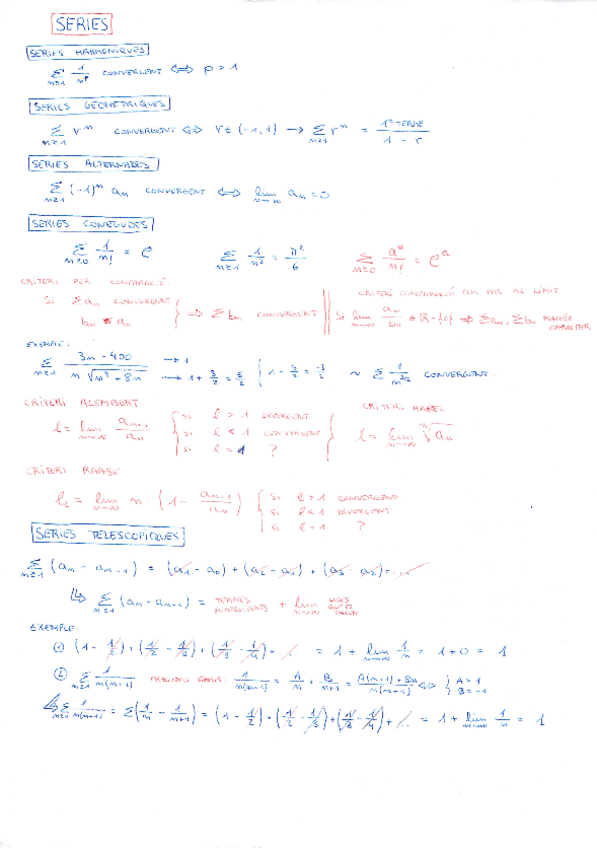 SERIES
SERIES HARMONIQUES
Σ n≥1 1/n^p CONVERGENT ⟺ p > 1
SERIES GEOMETRIQUES
Σ n≥1 r^n CONVERGENT ⟺ r ∈ (-1, 1) → Σ n≥1 r^n = 1r TERME / 1 - r
SERIES ALTERNADES
Σ n≥1 (-1)^n an CONVERGENT ⟺ lim n→∞ an = 0
SERIES CONEGUDES
Σ n≥0 1/n! = e Σ n≥1 1/n² = π²/6 Σ n≥0 a^n/n! = e^a
CRITERI PER COMPARACIÓ:
Si Σ an CONVERGENT
bn ≤ an } ⇒ Σ bn CONVERGENT
CRITERI COMPARACIÓ PEL PAS AL LÍMIT
Si lim n→∞ an/bn ∈ R - {0} ⇒ Σ an, Σ bn MATEIX CARACTER
EXEMPLE:
Σ n≥1 3n - 400 / n √(n³ + 8n) → 1 → 1 + 3/2 = 5/2 { 1 - 5/2 = -3/2 ~ Σ 1/n^3/2 CONVERGENT
CRITERI ALEMBERT
l = lim n→∞ an+1/an
{ si l > 1 DIVERGENT
si l < 1 CONVERGENT
si l = 1 ?
CRITERI ABEL
l = lim n→∞ ⁿ√an
CRITERI RAABE
l2 = lim n→∞ n · (1 - an+1/an)
{ si l > 1 CONVERGENT
si l < 1 DIVERGENT
si l = 1 ?
SERIES TELESCOPIQUES
Σ n≥1 (an - an-1) = (a1 - a0) + (a2 - a1) + (a3 - a2) + ...
↳ Σ n≥1 (an - an-1) = TERMES SUPERVIVENTS + lim n→∞
EXEMPLE:
① (1 - 1/2) + (1/2 - 1/3) + (1/3 - 1/4) + ... = 1 + lim n→∞ 1/n = 1 + 0 = 1
② Σ n≥1 1/n(n+1) 1/n(n+1) = A/n + B/n+1 = A(n+1) + Bn / n(n+1) ⟺ { A = 1 B = -1
↳ Σ n≥1 1/n(n+1) = Σ (1/n - 1/n+1) = (1 - 1/2) + (1/2 - 1/3) + (1/3 - 1/4) + ... = 1 + lim n→∞ 1/n = 1